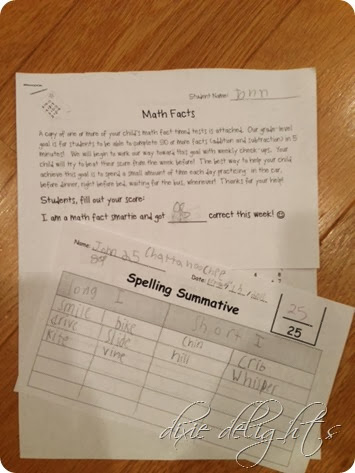 Student Name: John
Math Facts
A copy of one or more of your child's math fact timed tests is attached. Our grade level
goal is for students to be able to complete 90 or more facts (addition and subtraction) in 5
minutes! We will begin to work our way toward this goal with weekly check-ups. Your
child will try to beat their score from the week before! The best way to help your child
achieve this goal is to spend a small amount of time each day practicing in the car,
before dinner, right before bed, waiting for the bus, wherever! Thanks for your help!
Students, fill out your score:
I am a math fact smartie and got correct this week! ☺
Name: John 25 Chattahoochee
Date:
Spelling Summative
25
25
long I short I
smile bike chin crib
drive slide hill Whisper
kite vine
dixie delights